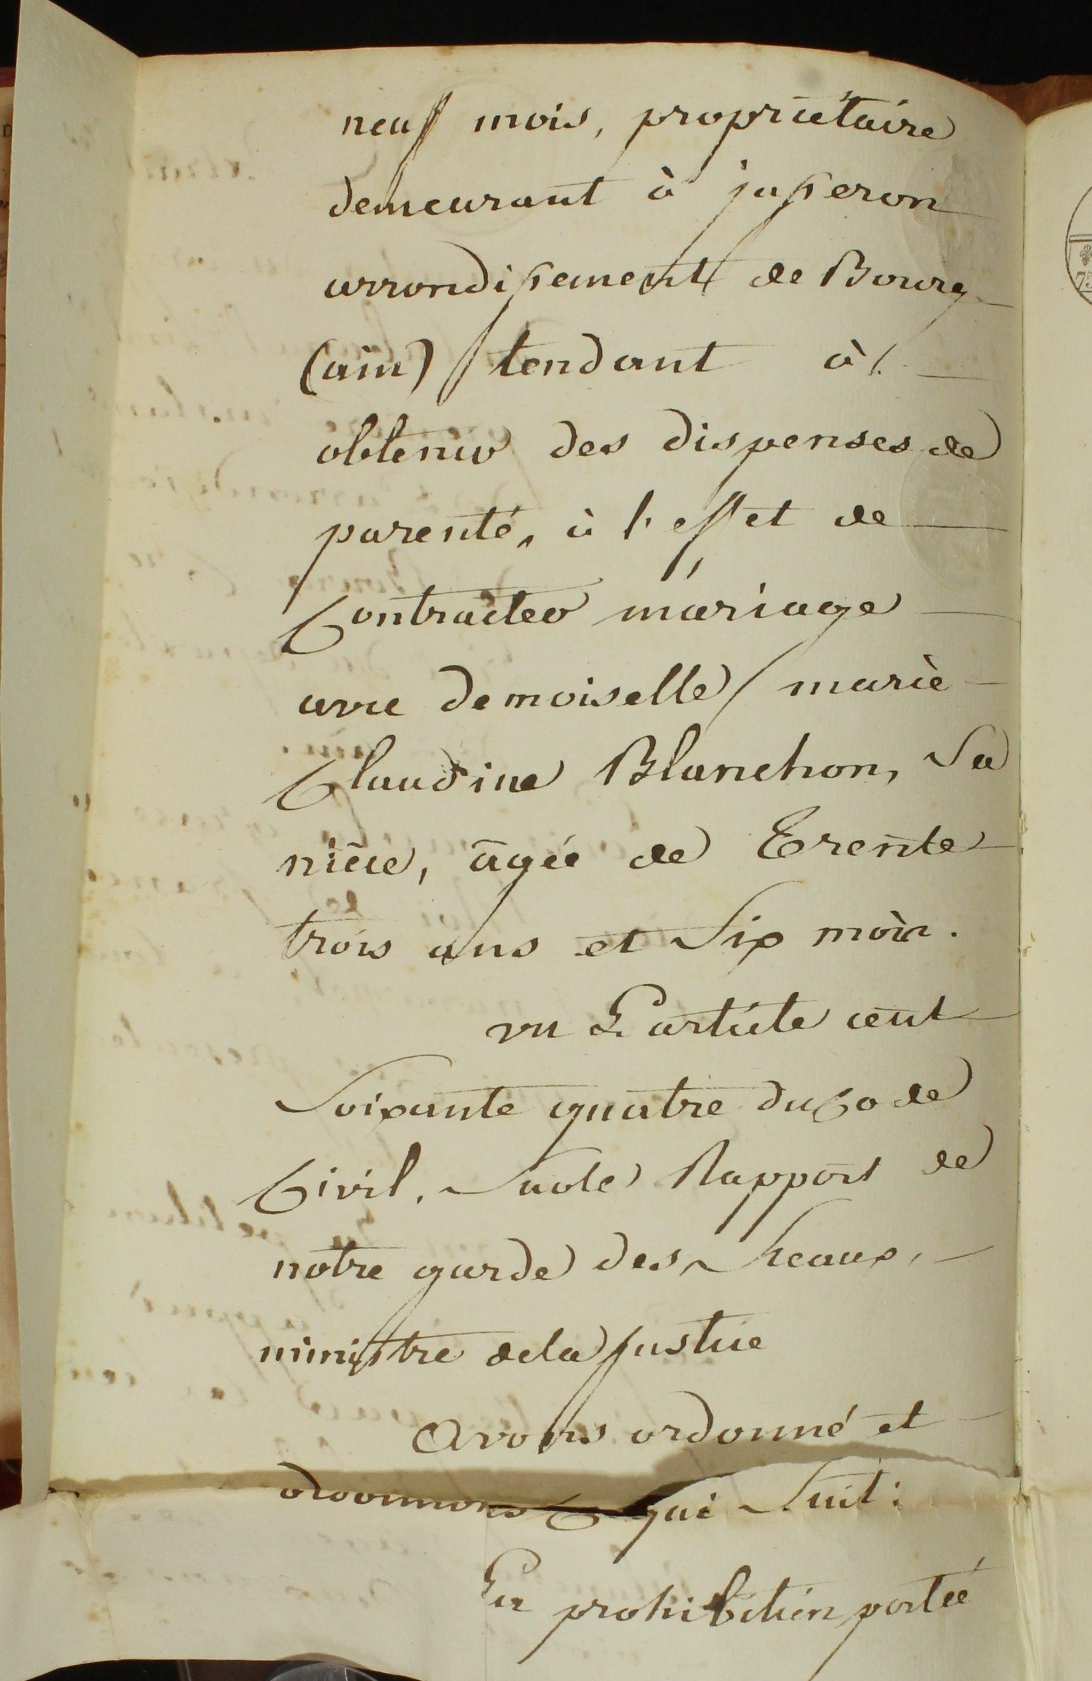 neuf mois, propriétaire
demeurant à jasseron
arrondissement de Bourg
(ain) tendant à
obtenir des dispenses de
parenté, à l'effet de
Contracter mariage
avec demoiselle marie
Claudine Blanchon, Sa
nièce, âgée de Trente
trois ans et Six mois.
vu L'article cent
Soixante quatre du Code
Civil. Sur le Rapport de
notre garde des Sceaux,
ministre de la Justice
Avons ordonné et
ordonnons Ce qui Suit:
La prohibition portée